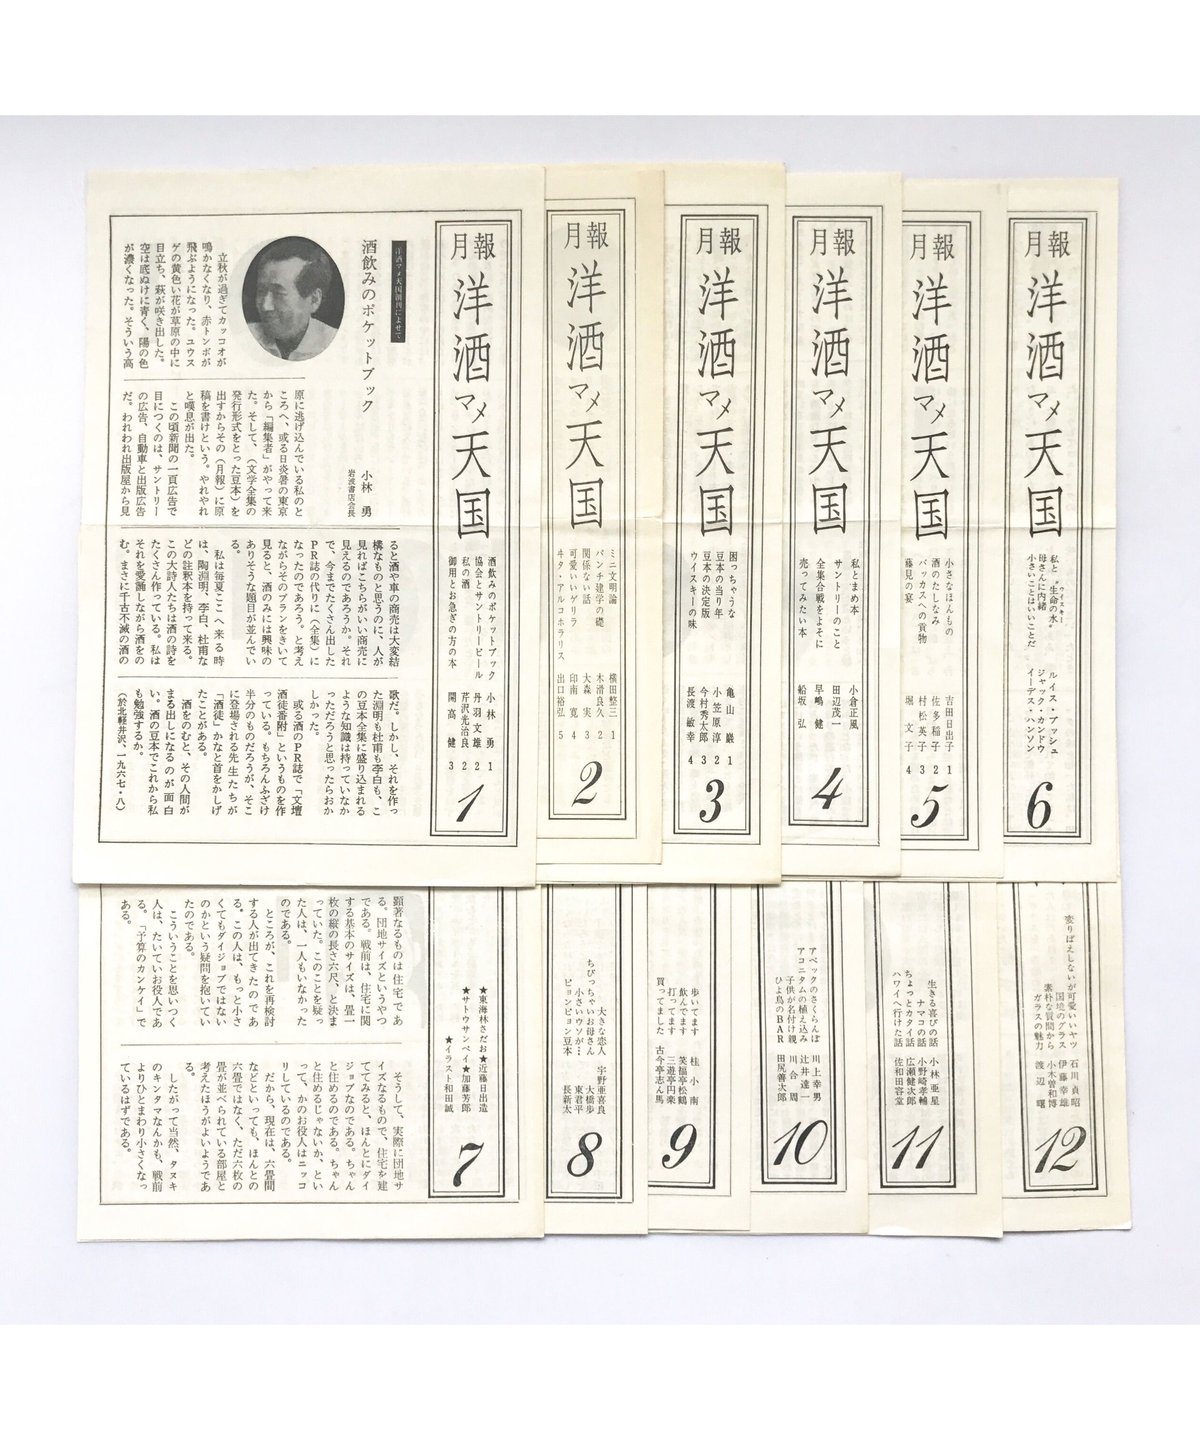 月報 洋酒マメ天国
酒飲みのポケットブック 小林 勇 1
協会とサントリービール 丹羽文雄 2
私の酒 芹沢光治良 2
御用とお急ぎの方の本 開高 健 3
1
洋酒マメ天国創刊によせて
酒飲みのポケットブック
小林 勇
岩波書店会長
立秋が過ぎてカッコオが
鳴かなくなり、赤トンボが
飛ぶようになった。ユウス
ゲの黄色い花が草原の中に
目立ち、萩が咲き出した。
空は底ぬけに青く、陽の色
が濃くなった。そういう高
原に逃げ込んでいる私のと
ころへ、或る日炎暑の東京
から「編集者」がやって来
た。そして、(文学全集の
発行形式をとった豆本)を
出すからその(月報)に原
稿を書けという。やれやれ
と嘆息が出た。
この頃新聞の一頁広告で
目につくのは、サントリー
の広告、自動車と出版広告
だ。われわれ出版屋から見
ると酒や車の商売は大変結
構なものと思うのに、人が
見ればこちらがいい商売に
見えるのであろうか。それ
で、今までたくさん出した
PR誌の代りに(全集)に
なったのであろう。と考え
ながらそのプランをきいて
見ると、酒のみには興味の
ありそうな題目が並んでい
る。
私は毎夏ここへ来る時
は、陶淵明、李白、杜甫な
どの註釈本を持って来る。
この大詩人たちは酒の詩を
たくさん作っている。私は
それを愛誦しながら酒をの
む。まさに千古不滅の酒の
歌だ。しかし、それを作っ
た淵明も杜甫も李白も、こ
の豆本全集に盛り込まれる
ような知識は持っていなか
っただろうと思ったらおか
しかった。
或る酒のPR誌で「文壇
酒徒番附」というものを作
っている。もちろんふざけ
半分のものだろうが、そこ
に登場される先生たちが
「酒徒」かなと首をかしげ
たことがある。
酒をのむと、その人間が
まる出しになるのが面白
い。酒の豆本でこれから私
も勉強するか。
(於北軽井沢、一九六七・八)
月報 洋酒マメ天国
ミニ文明論 横田整三 1
パンチ建学の礎 木滑良久 2
関係ない話 大森 実 3
可愛いいゲリラ 印南 寛 4
ヰタ・アルコホラリス 出口裕弘 5
2
月報 洋酒マメ天国
困っちゃうな 亀山 巌 1
豆本の当り年 小笠原 淳 2
豆本の決定版 今村秀太郎 3
ウイスキーの味 長渡敏幸 4
3
月報 洋酒マメ天国
私とまめ本 小倉正風
サントリーのこと 田辺茂一
全集合戦をよそに 早嶋 健
売ってみたい本 船坂 弘
4
月報 洋酒マメ天国
小さなほんもの 吉田日出子 1
酒のたしなみ 佐多稲子 2
バッカスへの貢物 村松英子 3
藤見の宴 堀 文子 4
5
月報 洋酒マメ天国
私と“生命の水” ルイス・ブッシュ
ウイスキー
母さんに内緒 ジャック・カンドウ
小さいことはいいことだ イーデス・ハンソン
6
★東海林さだお★近藤日出造
★サトウサンペイ★加藤芳郎
★イラスト和田誠
7
顕著なるものは住宅であ
る。団地サイズというやつ
である。戦前は、住宅に関
する基本のサイズは、畳一
枚の縦の長さ六尺、と決ま
っていた。このことを疑っ
た人は、一人もいなかった
のである。
ところが、これを再検討
する人が出てきたのであ
る。この人は、もっと小さ
くてもダイジョブではない
のかという疑問を抱いてい
たのである。
こういうことを思いつく
人は、たいていお役人であ
る。「予算のカンケイ」で
ある。
そうして、実際に団地サ
イズなるもので、住宅を建
ててみると、ほんとにダイ
ジョブなのである。ちゃん
と住めるのである。ちゃん
と住めるじゃないか、とい
って、かのお役人はニッコ
リしているのである。
だから、現在は、六畳間
などといっても、ほんとの
六畳ではなく、ただ六枚の
畳が並べられている部屋と
考えたほうがよいようであ
る。
したがって当然、タヌキ
のキンタマなんかも、戦前
よりひとまわり小さくなっ
ているはずである。
大きな恋人 宇野亜喜良
ちびっちゃいお母さん 大橋歩
小さいウソが… 東君平
ピョンピョン豆本 長新太
8
歩いてます 桂 小南
飲んでます 笑福亭松鶴
打ってます 三遊亭円楽
買ってました 古今亭志ん馬
9
アベックのさくらんぼ 川上幸男
アコニタムの植え込み 辻井達一
子供が名付け親 川合 周
ひよ鳥のBAR 田尻善次郎
10
生きる喜びの話 小林亜星
ナマコの話 小野崎孝輔
ちょっとカタイ話 広瀬健次郎
ハワイへ行けた話 佐和田容堂
11
変りばえしないが可愛いいヤツ 石川貞昭
国境のグラス 伊藤幸雄
素朴な質問から 小木曽和博
ガラスの魅力 渡辺 曙
12